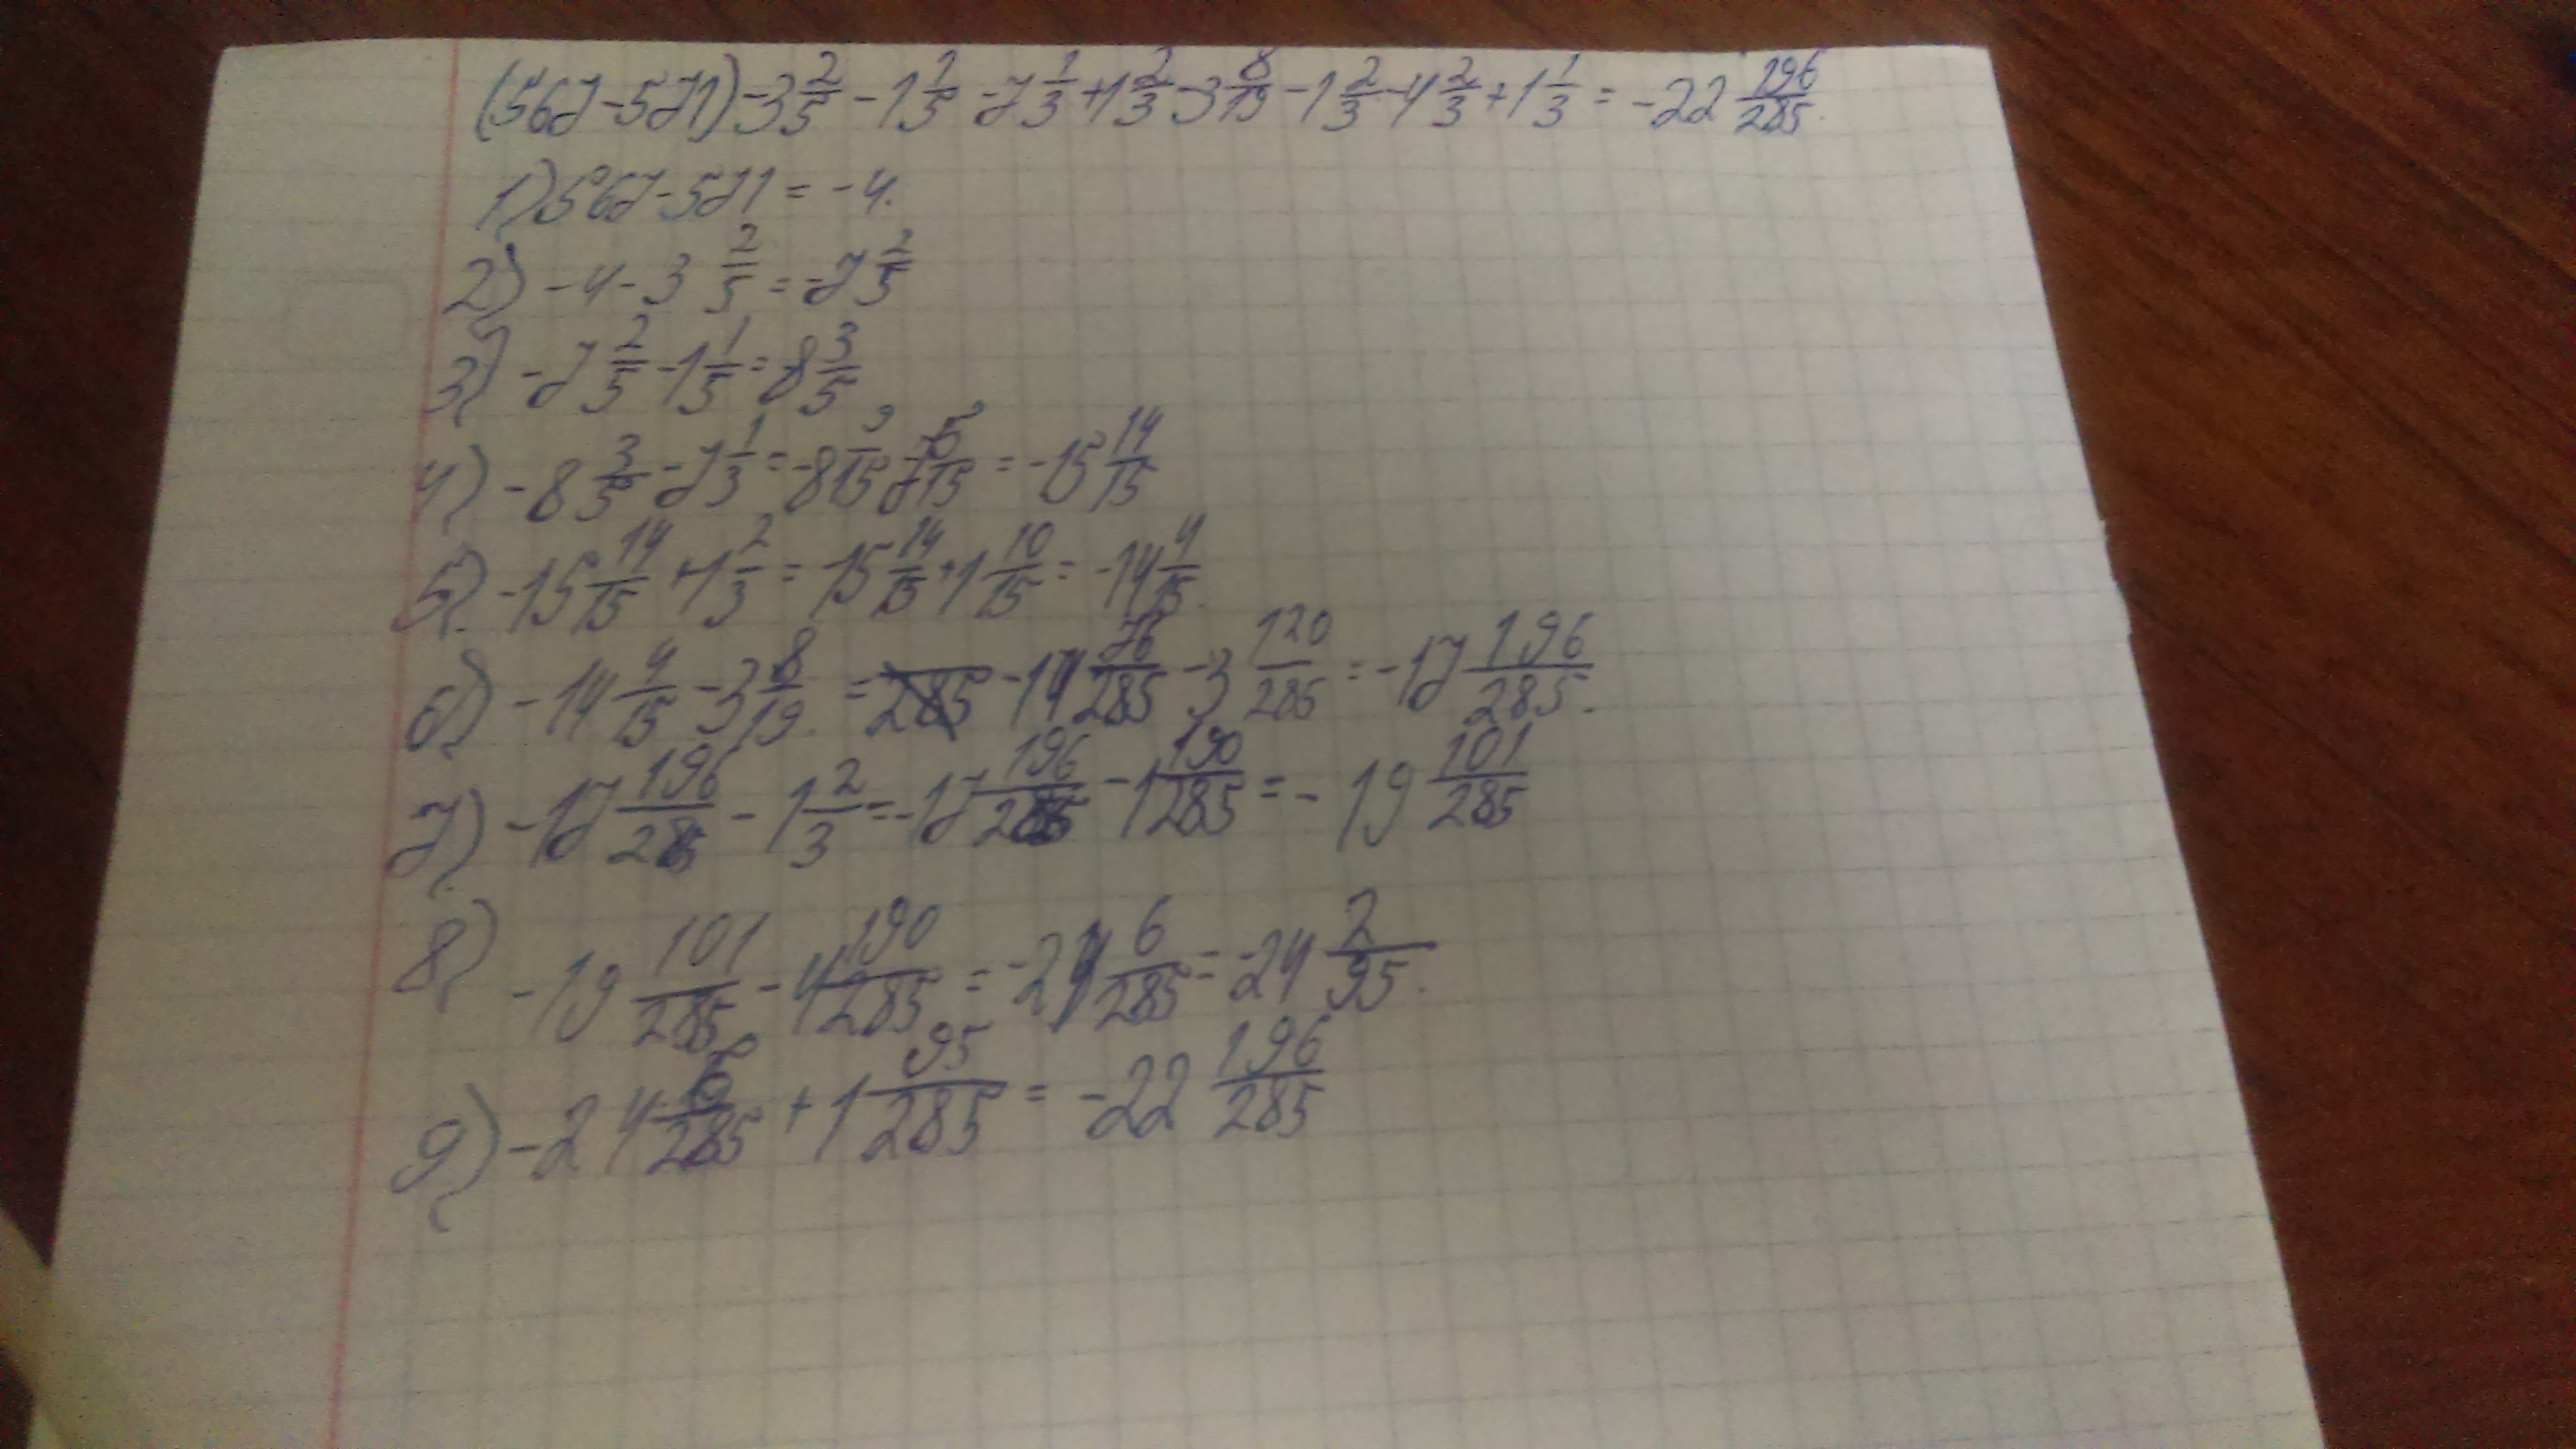 (567-571)-3 2/5 - 1 1/5 -7 1/3 +1 2/3 -3 8/19 -1 2/3 -4 2/3 +1 1/3 = -22 196/285.
1) 567-571 = -4.
2) -4-3 2/5 = -7 2/5
3) -7 2/5 -1 1/5 = -8 3/5
4) -8 3/5 -7 1/3 = -8 9/15 -7 5/15 = -15 14/15
5) -15 14/15 +1 2/3 = -15 14/15 +1 10/15 = -14 4/15.
6) -14 4/15 -3 8/19 = -14 76/285 -3 120/285 = -17 196/285.
7) -17 196/285 - 1 2/3 = -17 196/285 -1 190/285 = -19 101/285
8) -19 101/285 -4 190/285 = -24 6/285 = -24 2/95.
9) -24 6/285 +1 95/285 = -22 196/285